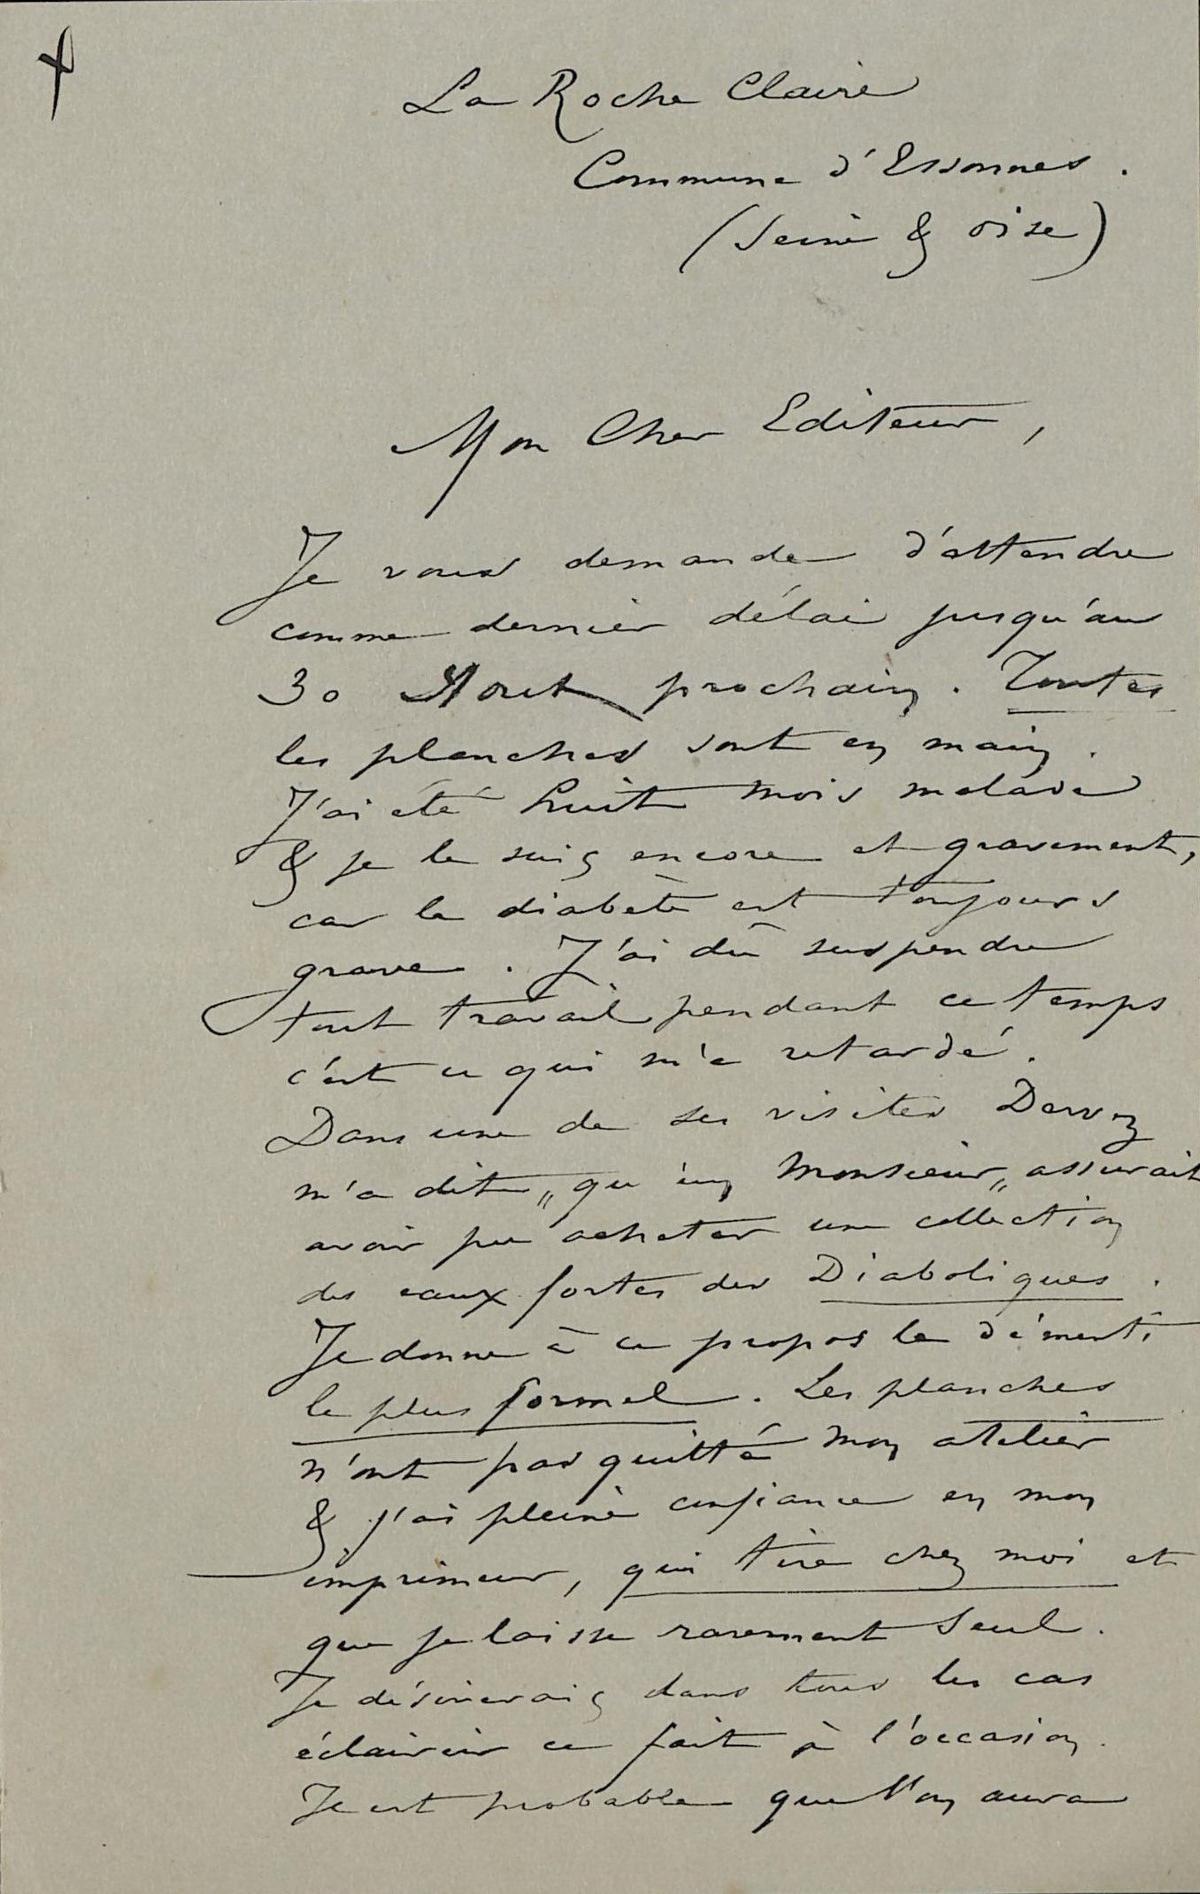 La Roche Claire
Commune d'Essonnes.
(Seine & oise)
Mon Cher Editeur,
Je vous demande d'attendre
comme dernier délai jusqu'au
30 Aout prochain. Toutes
les planches sont en main.
J'ai été huit mois malade
& je le suis encore et gravement,
car le diabète est toujours
grave. J'ai dû suspendre
tout travail pendant ce temps
c'est ce qui m'a retardé.
Dans une de ses visites
m'a dit „qu'un Monsieur„ assurait
avoir pu acheter une collection
des eaux fortes des Diaboliques.
Je donne à ce propos le démenti
le plus formel. Les planches
n'ont pas quitté mon atelier
& j'ai pleine confiance en mon
imprimeur, qui tire chez moi et
que je laisse rarement seul.
Je désirerais dans tous les cas
éclaircir ce fait à l'occasion.
Il est probable que l'on aura